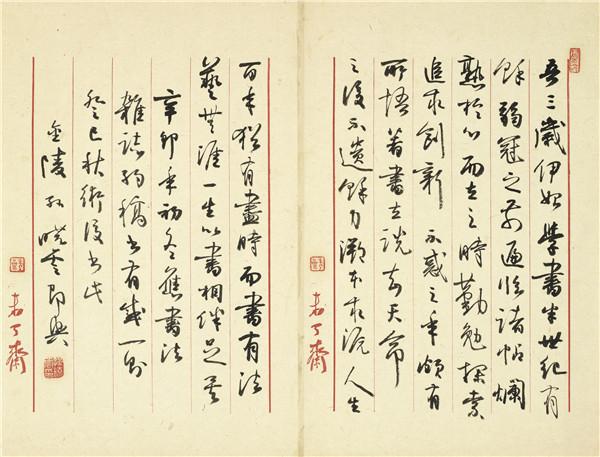 吾三歲伊始學書半世紀有
餘弱冠之前遍臨諸帖爛
熟於心而立之時勤勉探索
追求創新不惑之年頗有
所悟著書立說知天命
之後不遺餘力溯本求源人生
百年猶有盡時而書有法
藝無涯一生以書相伴足矣
辛卯年初冬應書法
雜誌約稿書有感一則
癸巳秋術後書此
金陵孫曉雲即興